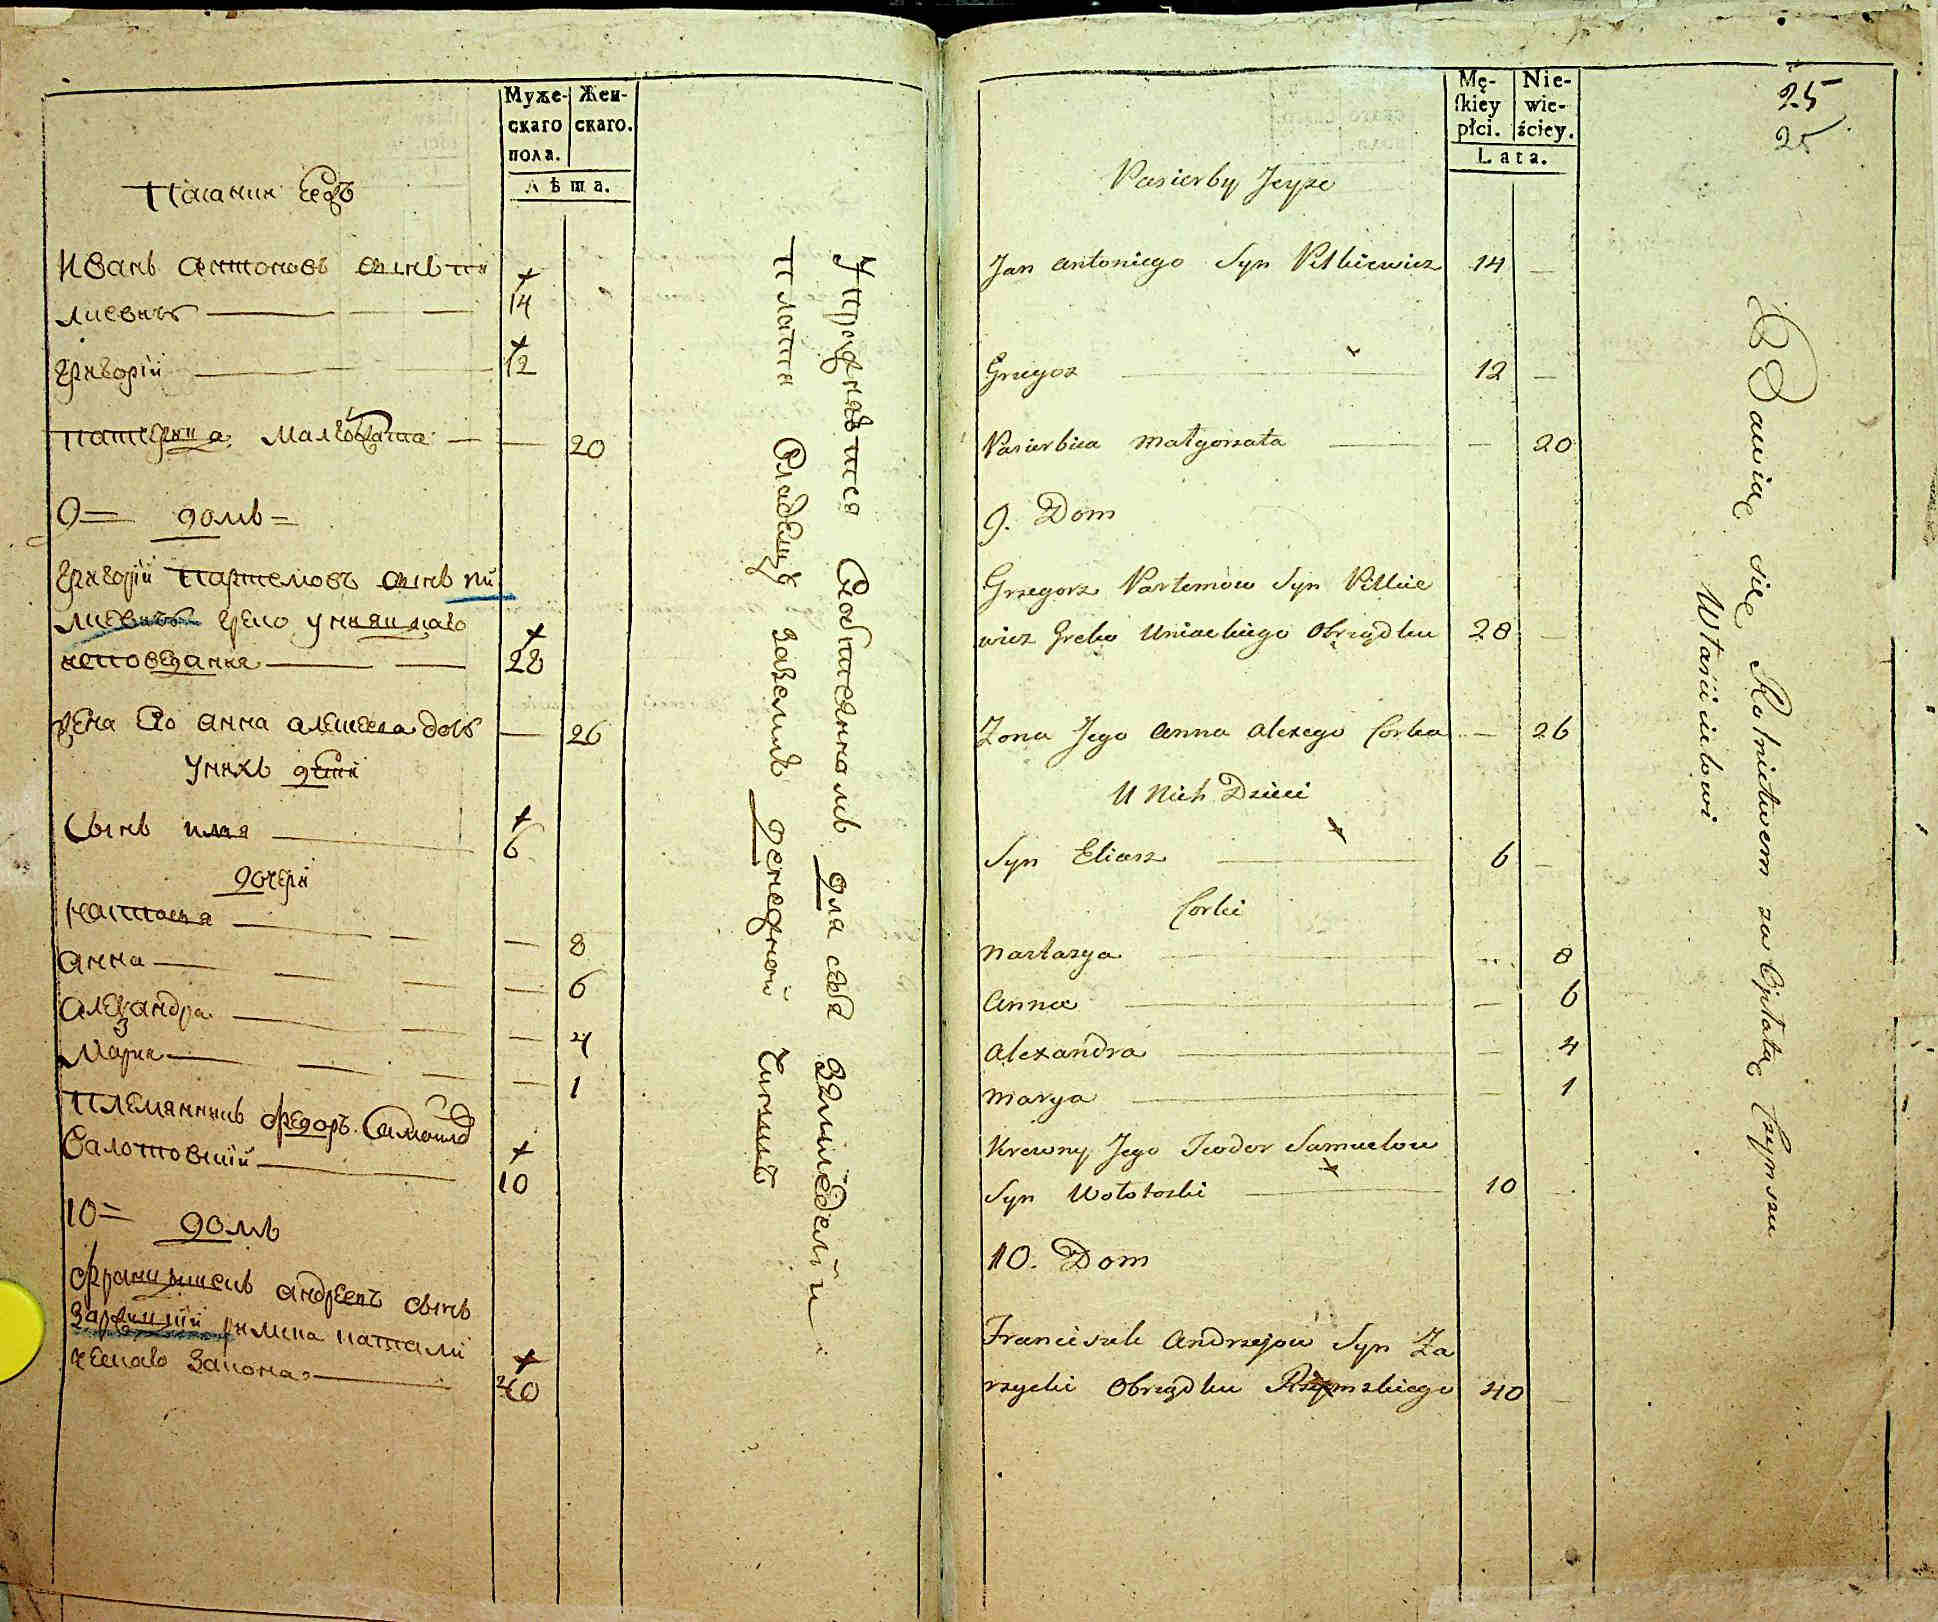 Муже-
скаго
пола.
Жен-
скаго.
Лѣта.
Иванъ Антоновъ сынъ Пи
14
Григорій
12
Малгората
20
9 = домъ =
Григорій Партемовъ сынъ Пи
греко унияцкаго
исповедания
28
Жена Его Анна Алексева дочь
26
Унихъ дети
Сынъ Илья
6
дочери
Настасья
8
Анна
6
Александра
4
Мария
1
Племянникъ Федоръ Самойло
10
10 = домъ
Францишекъ Андреевъ сынъ
Зарецкій римска католи
ческаго Закона
40
Упражняется собственномъ для себя земледелии
плати Владельцу завемлѣ денежной чиншъ
Mę-
skiey
płci.
Nie-
wie-
ściey.
Lata.
25
25
Pasierby Jeyże
Jan Antoniego Syn Pitkiewicz 14 —
Grzegorz 12 —
Pasierbica Małgorzata — 20
9. Dom
Grzegorz Partemow Syn Pitkie
wicz Greko Uniackiego Obrządku 28 —
Zona Jego Anna Alexego Corka — 26
U Nich Dzieci
Syn Eliasz 6 —
Corki
Nastazya 8
Anna — 6
Alexandra — 4
Marya — 1
Krewny Jego Teodor Samuelow
Syn Wołotoski 10
10. Dom
Franciszek Andrzejow Syn Za
rzycki Obrządku Rzymskiego 40
Bawiąc się Rolnictwem za Opłatą Czynszu
Właścicielowi